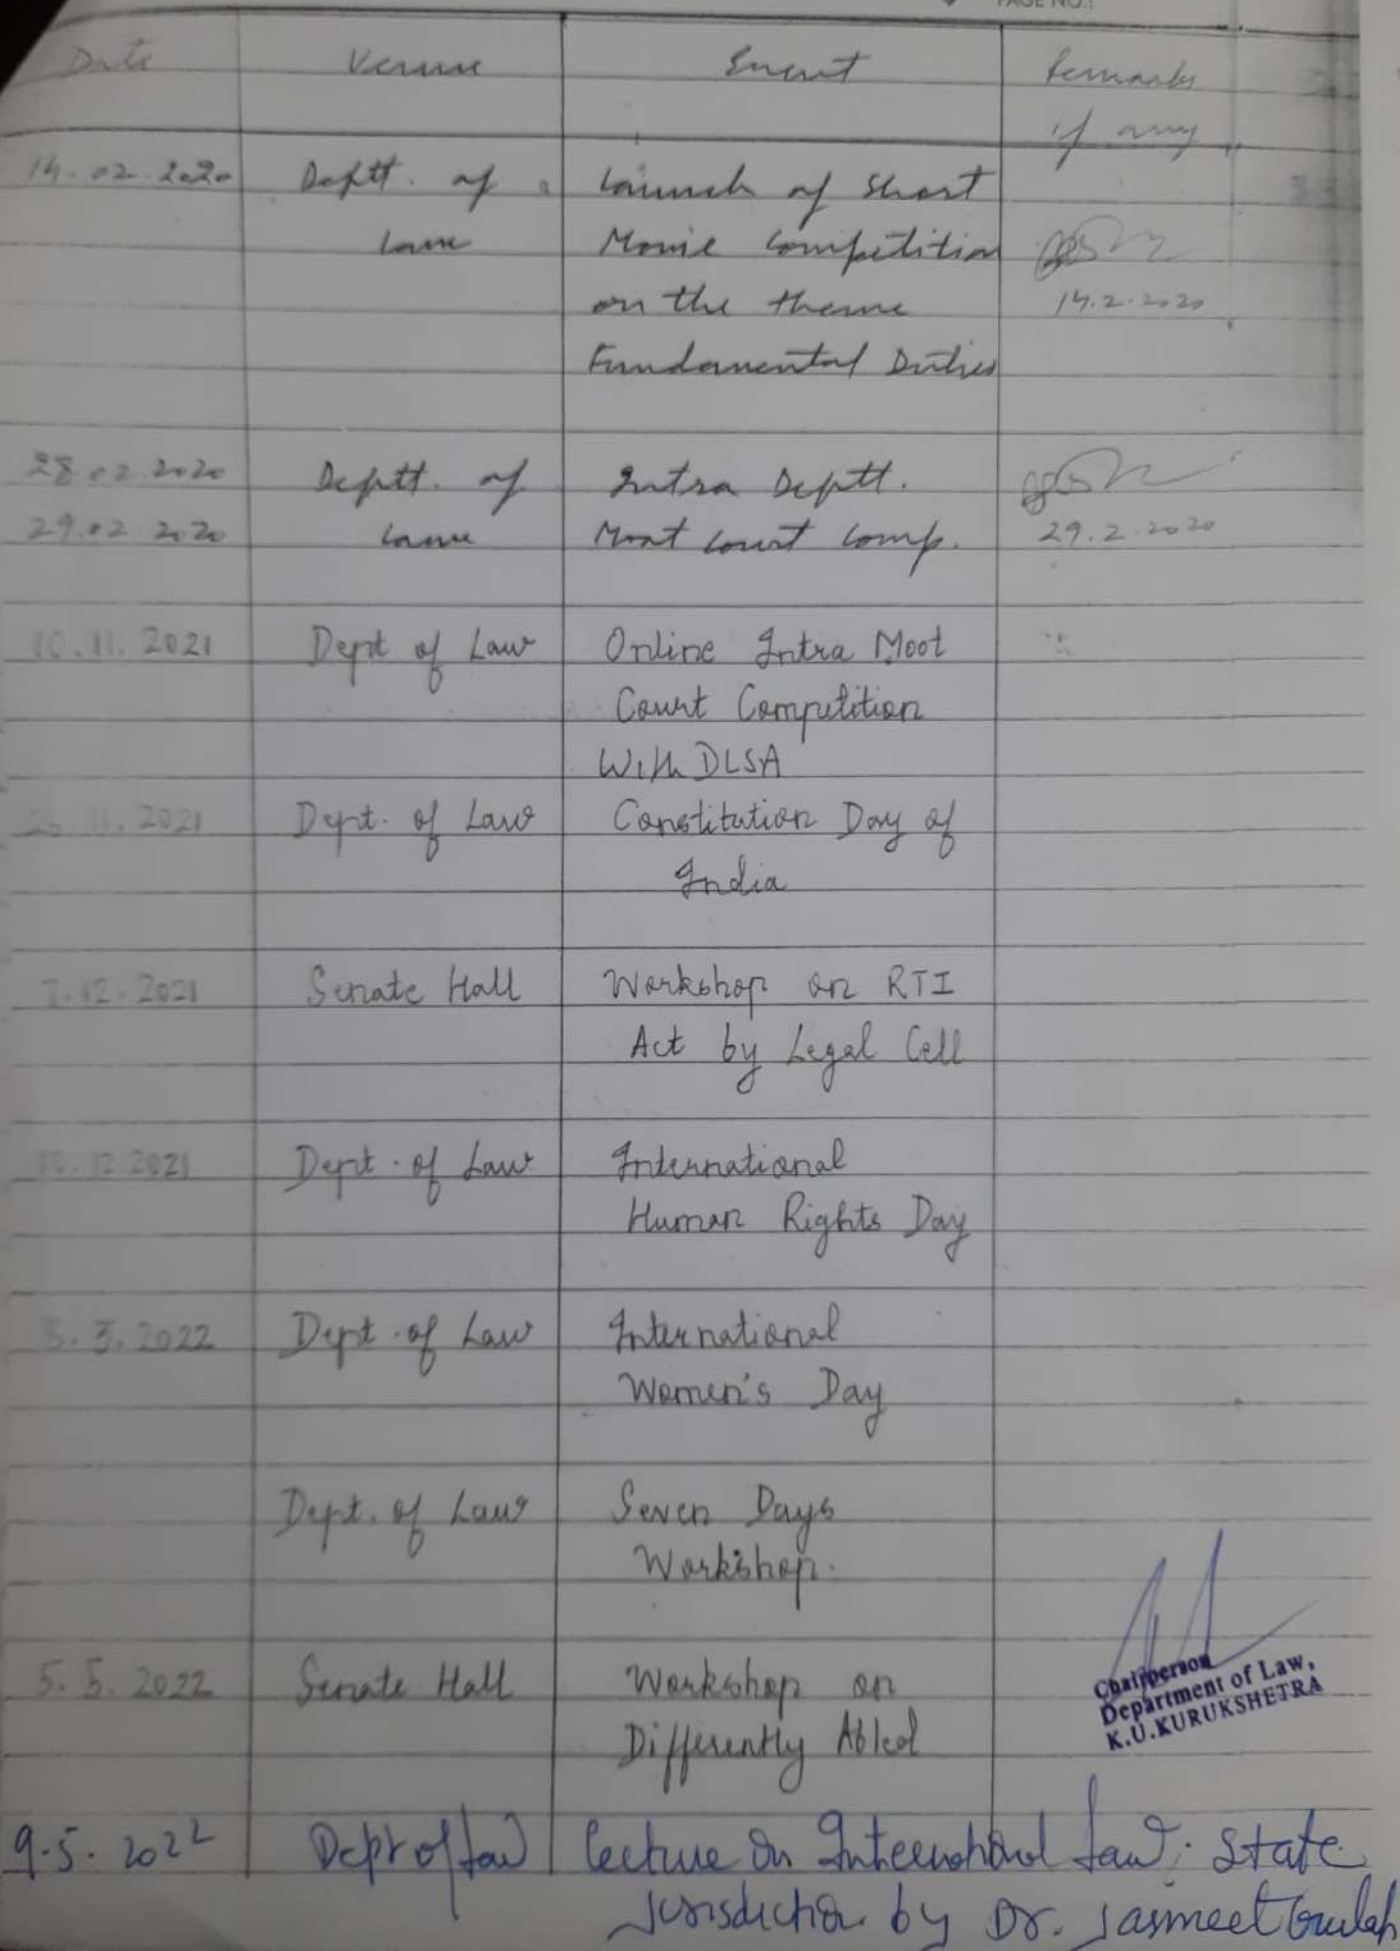 PAGE NO.:
Date Venue Event Remarks
if any
14.02.2020 Deptt. of Launch of Short
Law Movie Competition
on the theme 14.2.2020
Fundamental Duties
28.02.2020 Deptt. of Intra Deptt.
29.02 2020 Law Moot Court Comp. 29.2.2020
10.11.2021 Dept of Law Online Intra Moot
Court Competition
With DLSA
26.11.2021 Dept. of Law Constitution Day of
India
7.12.2021 Senate Hall Workshop on RTI
Act by Legal Cell
10.12.2021 Dept. of Law International
Human Rights Day
3.2022 Dept. of Law International
Women's Day
Dept. of Law Seven Days
Workshop.
5.5.2022 Senate Hall Workshop on
Differently Abled
Chairperson
Department of Law,
K.U.KURUKSHETRA
9.5.2022 Dept of Law Lecture on International Law: State
Jurisdiction by Dr. Jasmeet